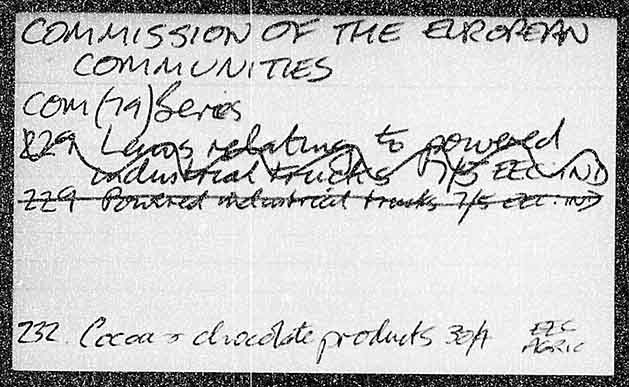 COMMISSION OF THE EUROPEAN
COMMUNITIES
COM (79) Series
229 Laws relating to powered
industrial trucks 7/5 EEC.IND
229 Powered industrial trucks 7/5 EEC.IND
232. Cocoa & chocolate products 30/4 EEC
AGRIC